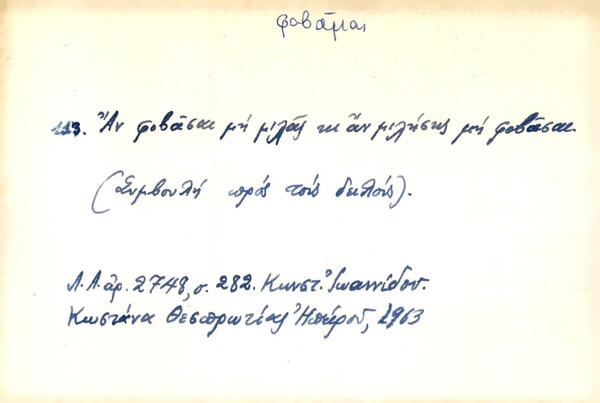 φοβᾶμαι
113. Ἄν φοβᾶσαι μή μιλᾶς κι ἄν μιλήσης μή φοβᾶσαι.
(Συμβουλή πρός τούς δειλούς).
Λ.Λ.ἀρ. 2748, σ. 282. Κωνστ. Ἰωαννίδου.
Κωστάνα Θεσπρωτίας Ἠπείρου, 1963